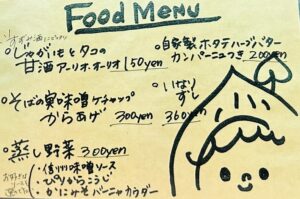 Food Menu
・じゃがいもとタコの
甘酒アーリオ・オーリオ 150yen
・自家製ホタテハーブバター
カンパーニュつき 200yen
・そばの実味噌ケチャップ
からあげ 300yen
・いなり
ずし
360yen
・蒸し野菜 300yen
・信州味噌ソース
・ぴりからこうじ
・かにみそバーニャカウダー
お好きな
ソース
選べる